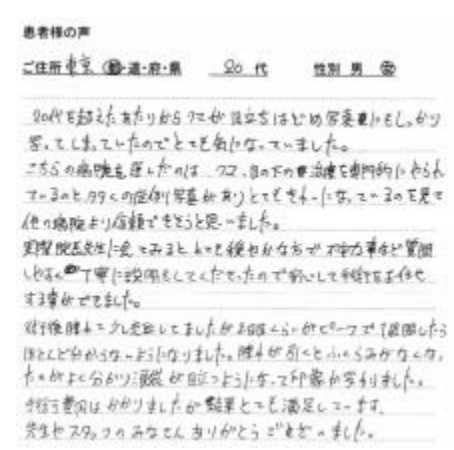 患者様の声
ご住所 東京 都・道・府・県 20 代 性別 男 女
20代を超えたあたりからクマが目立ちはじめ写真にもしっかり
写ってしまっていたのでとても気になっていました。
こちらの病院を選んだのは クマ、目の下の治療を専門的にやられ
ているのと、多くの症例写真がありとてもきれいになっているのを見て
他の病院より信頼できそうと思いました。
実際院長先生に会ってみると とても穏やかな方で 不安な事など質問
しても丁寧に説明をしてくださったので安心して手術をお任せ
する事ができました。
術後腫れて少し充血してましたが2日目くらいがピークで1週間したら
ほとんど分からないようになりました。腫れが引くとふくらみがなくなっ
たのがよく分かり涙袋が目立つようになって印象が変わりました。
手術費用はかかりましたが結果とても満足しています。
先生とスタッフのみなさんありがとうございました。